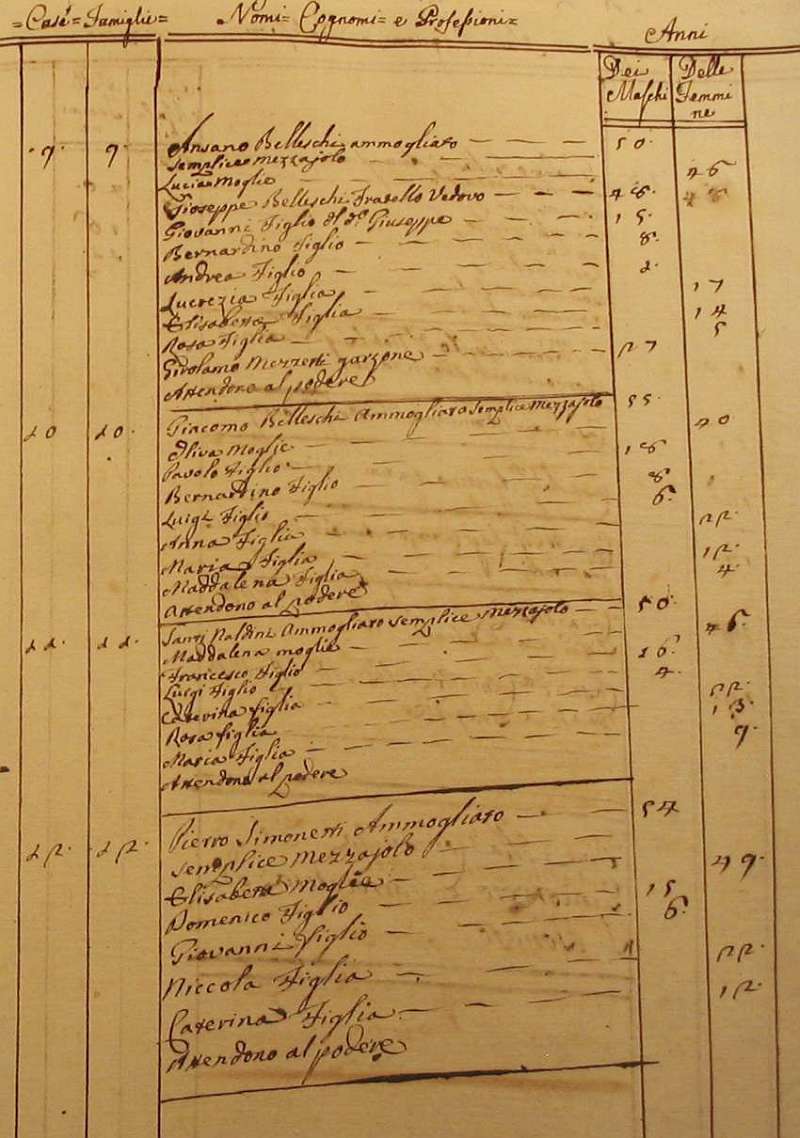 = Case = Famiglie = Nomi = Cognomi = e Professioni = Anni
Dei Maschi Delle Femmine
9. 9. Ansano Belleschi ammogliato 50.
semplice mezzajolo
Moglie 46
Gioseppe Belleschi Fratello Vedovo 48.
Giovanni Figlio di d.º Giuseppe 15.
Bernardino Figlio 8.
Andrea Figlio 2.
Lucrezia Figlia 17
Elisabetta Figlia 14
Rosa Figlia 5
Girolamo garzone 27
Attendono al podere
10 10. Giacomo Belleschi Ammogliato semplice mezzajolo 55
Oliva Moglie 40
Pavolo Figlio 18
Bernardino Figlio 8
Luigi Figlio 6.
Anna Figlia 22
Maria Figlia 12
Maddalena Figlia 4
Attendono al podere
11. 11. Santi Naldini Ammogliato semplice mezzajolo 50.
Maddalena moglie 46.
Francesco Figlio 16
Luigi Figlio 4
Caterina Figlia 22
Rosa figlia 13
Maria Figlia 9.
Attendono al podere
12 12. Pietro Simonetti Ammogliato 54
semplice Mezzajolo
Elisabetta Moglie 49.
Domenico Figlio 15
Giovanni Figlio 6.
Niccola Figlia 22.
Caterina Figlia 12.
Attendono al podere